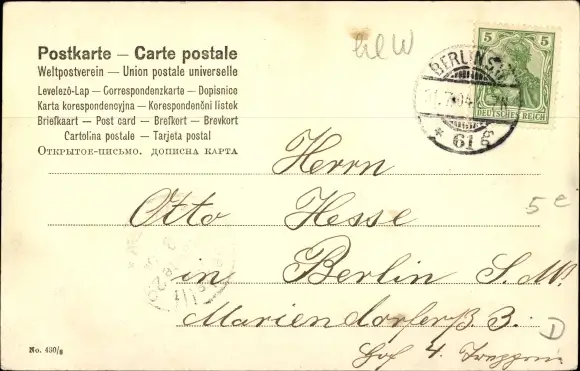 Postkarte — Carte postale
Weltpostverein — Union postale universelle
Levelező-Lap — Correspondenzkarte — Dopisnice
Karta korespondencyjna — Korespondenční listek
Briefkaart — Post card — Brefkort — Brevkort
Cartolina postale — Tarjeta postal
Открытое-письмо. дописна карта
5 5
DEUTSCHES REICH
BERLIN S.W.
* 61 g
Herrn
Otto Hesse
in Berlin S. W.
Mariendorferß. 3.
Hof 4.
5 e
D
No. 430/g